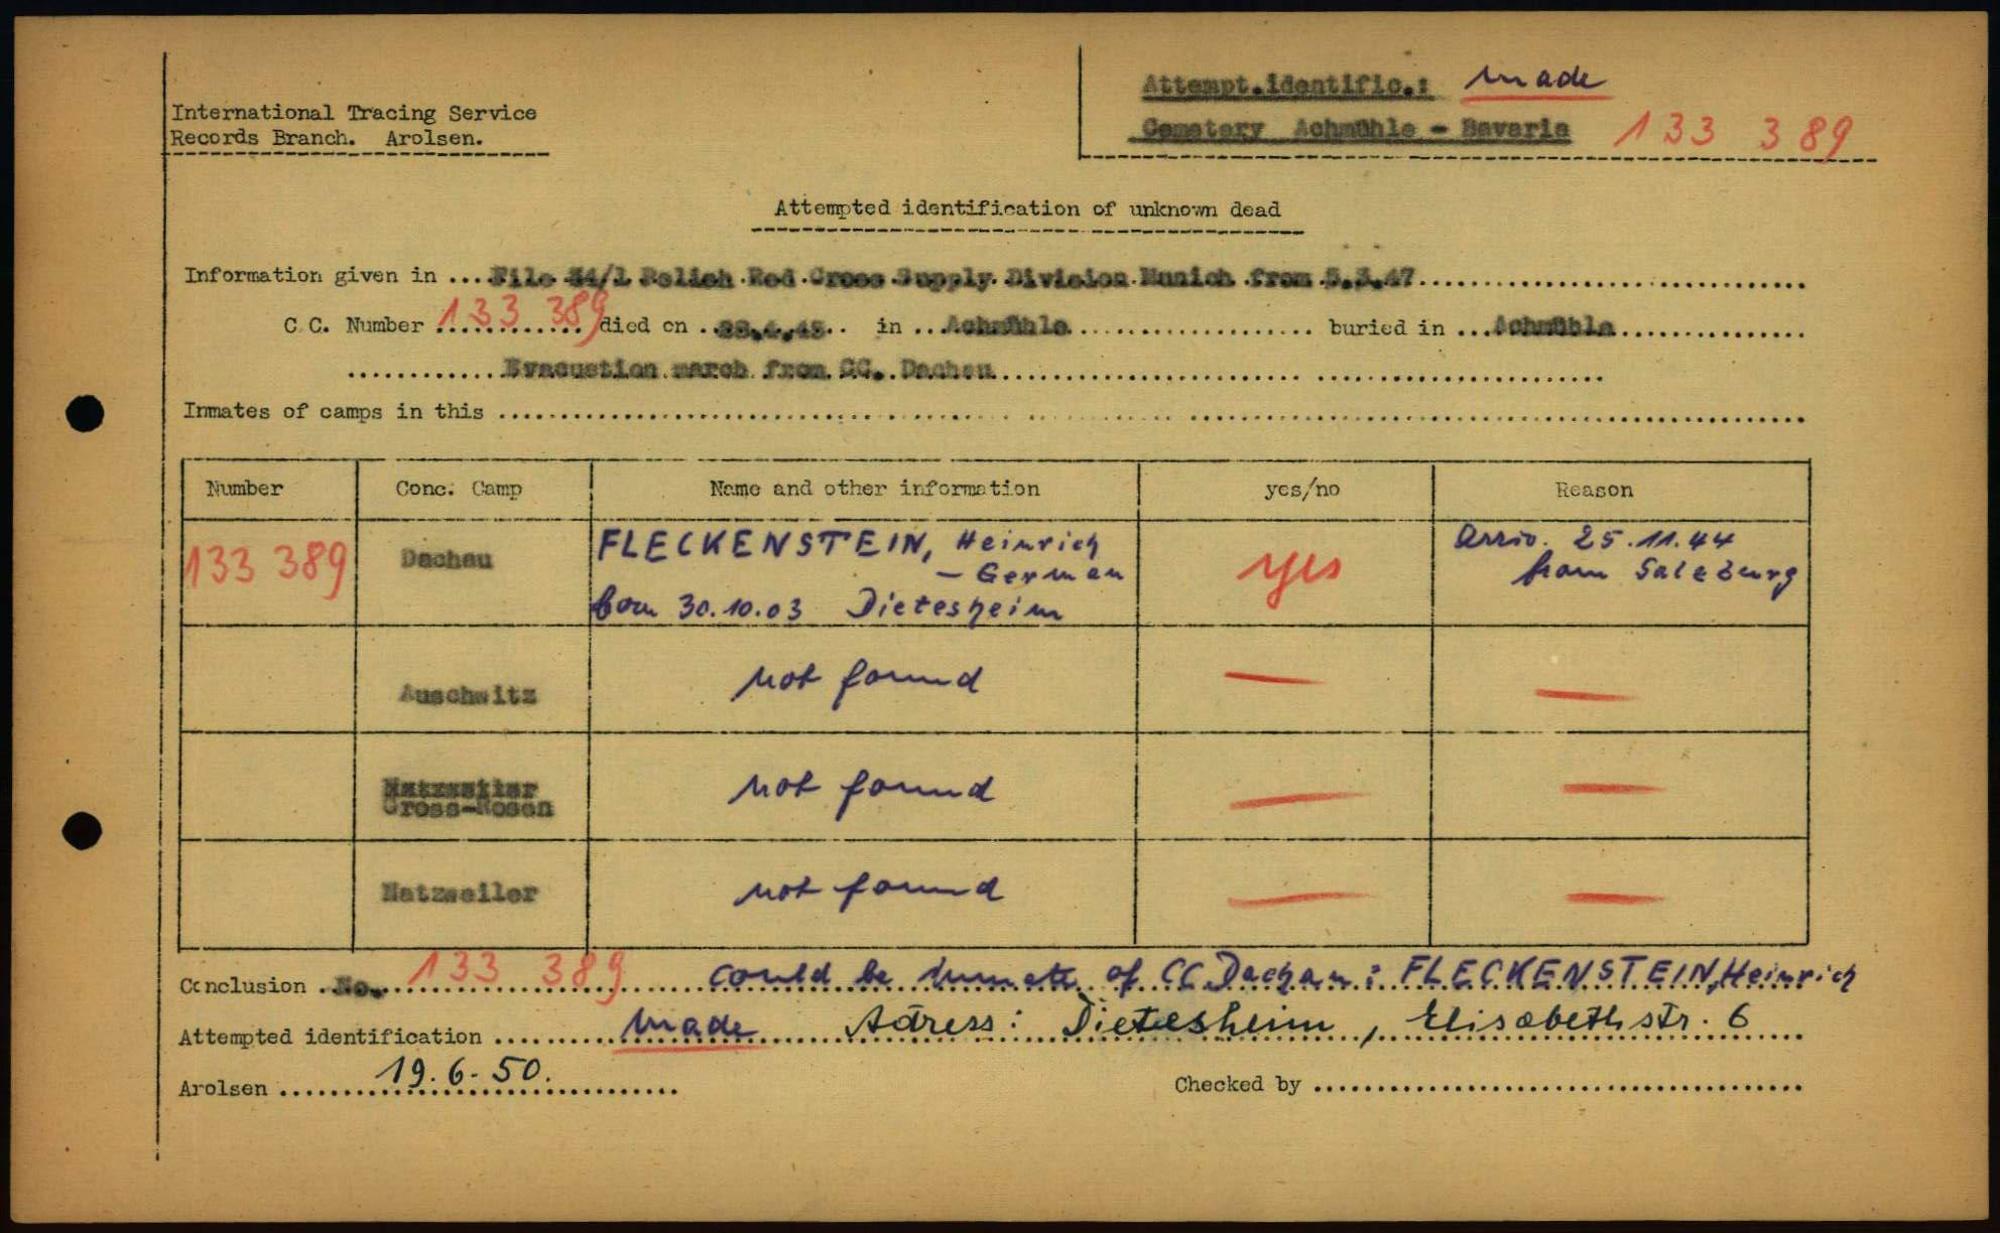 Attempt.identific.: made
International Tracing Service
Records Branch. Arolsen.
Cemetery Achmühle - Bavaria 133 389
Attempted identification of unknown dead
Information given in ... File 34/1 Polish Red Cross Supply Division Munich from 5.3.47
C C. Number 133 389 died on .4.45 in Achmühle buried in Achmühle
Evacuation march from CC. Dachau
Inmates of camps in this
Number Conc. Camp Name and other information yes/no Reason
133 389 Dachau FLECKENSTEIN, Heinrich yes Arriv. 25.11.44
- German from Salzburg
born 30.10.03 Dietesheim
Auschwitz not found — —
Natzweiler
Gross-Rosen not found — —
Natzweiler not found — —
Conclusion No. 133 389 could be inmate of CC Dachau: FLECKENSTEIN, Heinrich
Attempted identification made Adress: Dietesheim, Elisabethstr. 6
Arolsen 19.6.50. Checked by